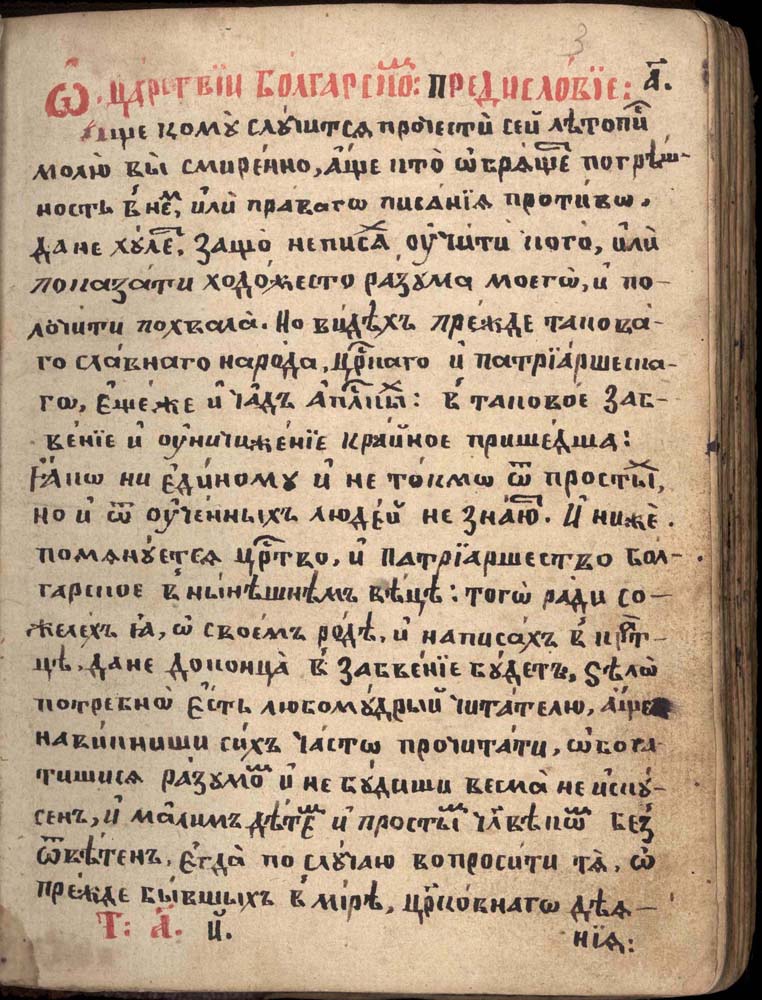 3
Ѡ. Ца́рствїи Болга́рском̾: Предисло́вїе: а҃.
Аще комꙋ̀ слꙋ́чится прочести̇̀ сей лѣ́топи́с
молю̀ вы̀ смире́нно, а́ще что̀ ѡ҆бря́щет̾ погрѣ́ш-
ность в̾ не́м̾, и҆лѝ пра́вагѡ писа́нїѧ проти́вѡ.
да не хꙋ́лет̾, защо̀ неписа́х оу҆чи́ти кого̀, и҆лѝ
показа́ти ходо́жесто ра́зꙋма моегѡ̀, и҆ по-
лꙋчи́ти похвала̀. Но ви́дѣхъ пре́жде такова́-
го сла́внаго наро́да, цр҃каго и҆ патрїа́ршеска-
гѡ, є҆ще́же и҆ ча́дъ а҆пл҃ски́х: в̾ таково́е заб-
ве́нїе и҆ оу҆ничиже́нїе кра́йное прише́дша:
Ꙗ҆́кѡ ни є҆ди́номꙋ и҆ не то́кмѡ ѿ просты́х,
но и҆ ѿ оу҆че́нныхъ люде́й не зна́ют. И҆ нижѐ.
помѧнꙋ́етсѧ цр҃тво, и҆ патрїа́ршество бол-
га́рское в̾ ны́нѣшнѣмъ вѣ́цѣ: тогѡ̀ ра́ди со-
желе́хъ ꙗ҆, ѡ҆ свое́мъ ро́дѣ, и҆ написа́хъ в̾ кра́т-
цѣ, да не доконца̀ в̾ забве́нїе бꙋ́детъ, ѕѣлѡ̀
потре́бнѡ є҆́сть любомꙋ́дрый чита́телю, а́ще
нави́книши си́хъ ча́стѡ прочита́ти, ѡ҆бога-
ти́шисѧ ра́зꙋмом̾ и҆ не бꙋ́диши весма̀ не и҆скꙋ́-
сенъ, и҆ ма́лимъ дѣ́тем̾ и҆ просты́м̾ чл҃вѣком̾ без̾
ѿвѣ́тенъ, є҆гда̀ по слꙋ́чаю вопроси́ти тѧ̀, ѡ҆
пре́жде бы́вшыхъ в̾ мі́рѣ, цр҃ко́внагѡ дѣѧ-
Т: а҃. й.
нїѧ: